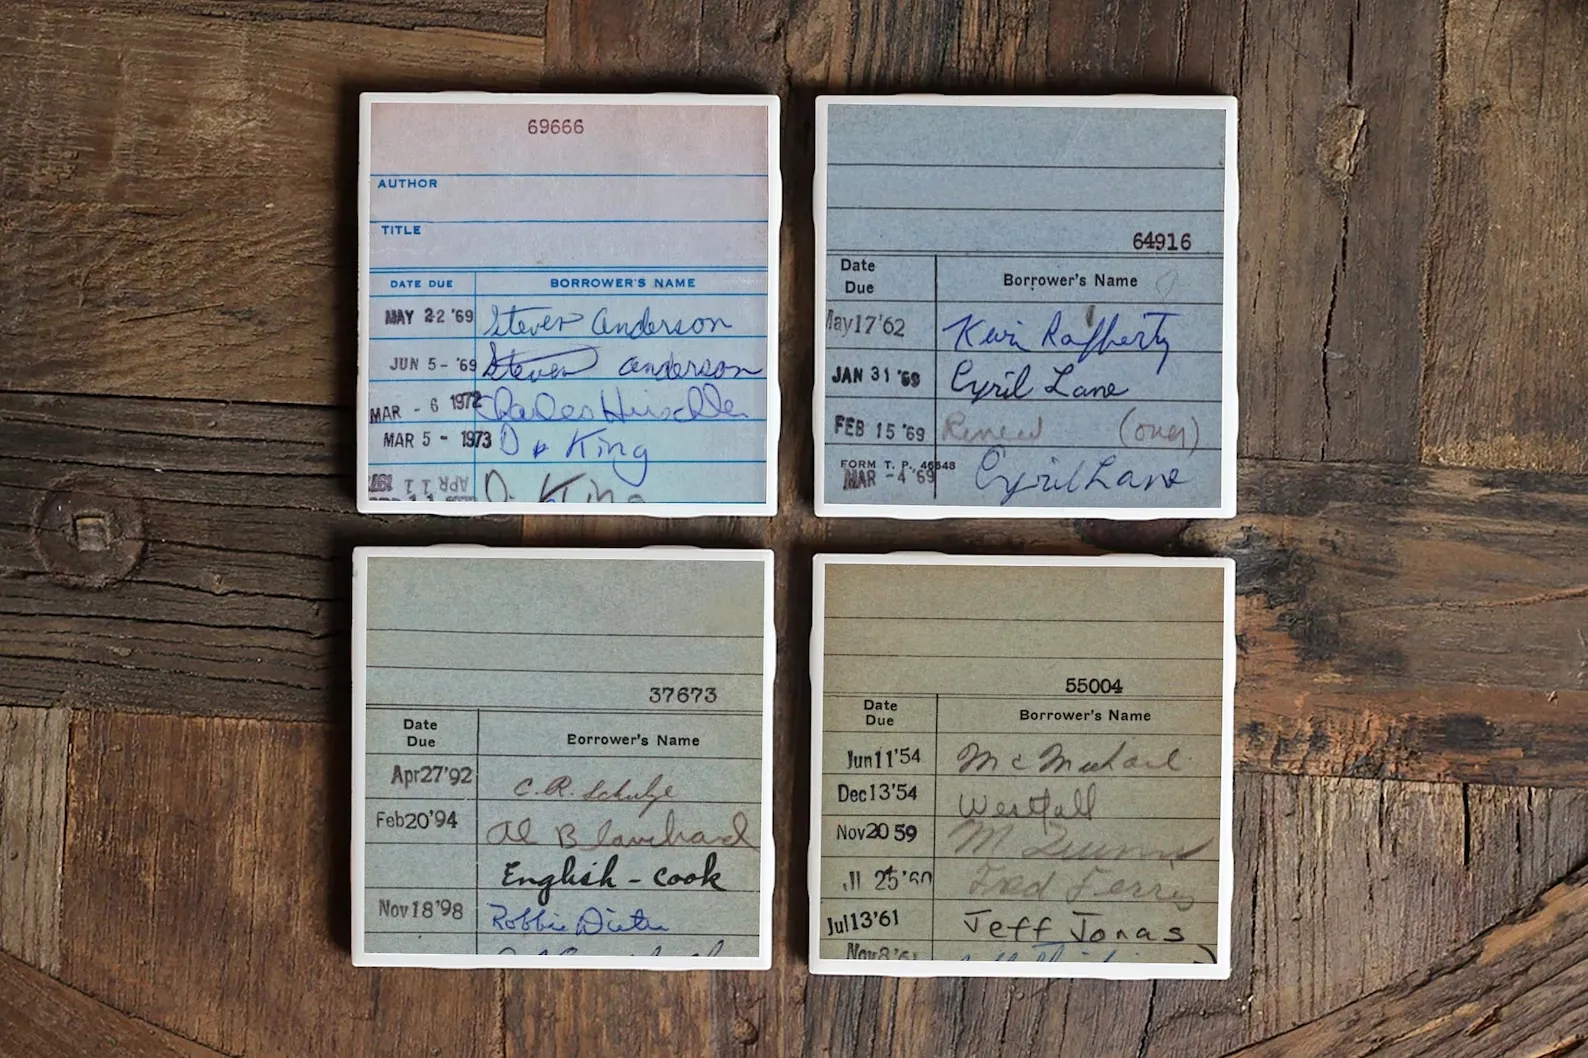 69666
AUTHOR
TITLE
DATE DUE BORROWER'S NAME
MAY 22 '69 Steven Anderson
JUN 5 - '69 Steven Anderson
MAR - 6 1972 Charles Hirschler
MAR 5 - 1973 D. King
APR 11 D. King
64916
Date Due Borrower's Name
May 17 '62 Kevin Rafferty
JAN 31 '69 Cyril Lane
FEB 15 '69 Renew (over)
FORM T. P. 46648
MAR - 4 '69 Cyril Lane
37673
Date Due Borrower's Name
Apr 27 '92 C. R. Schulze
Feb 20 '94 Al Blanchard
English - Cook
Nov 18 '98 Robbie Dieter
55004
Date Due Borrower's Name
Jun 11 '54 McMichael
Dec 13 '54 Westfall
Nov 20 59 M Quinn
25 '60 Fred Ferris
Jul 13 '61 Jeff Jonas
Nov 8 '61